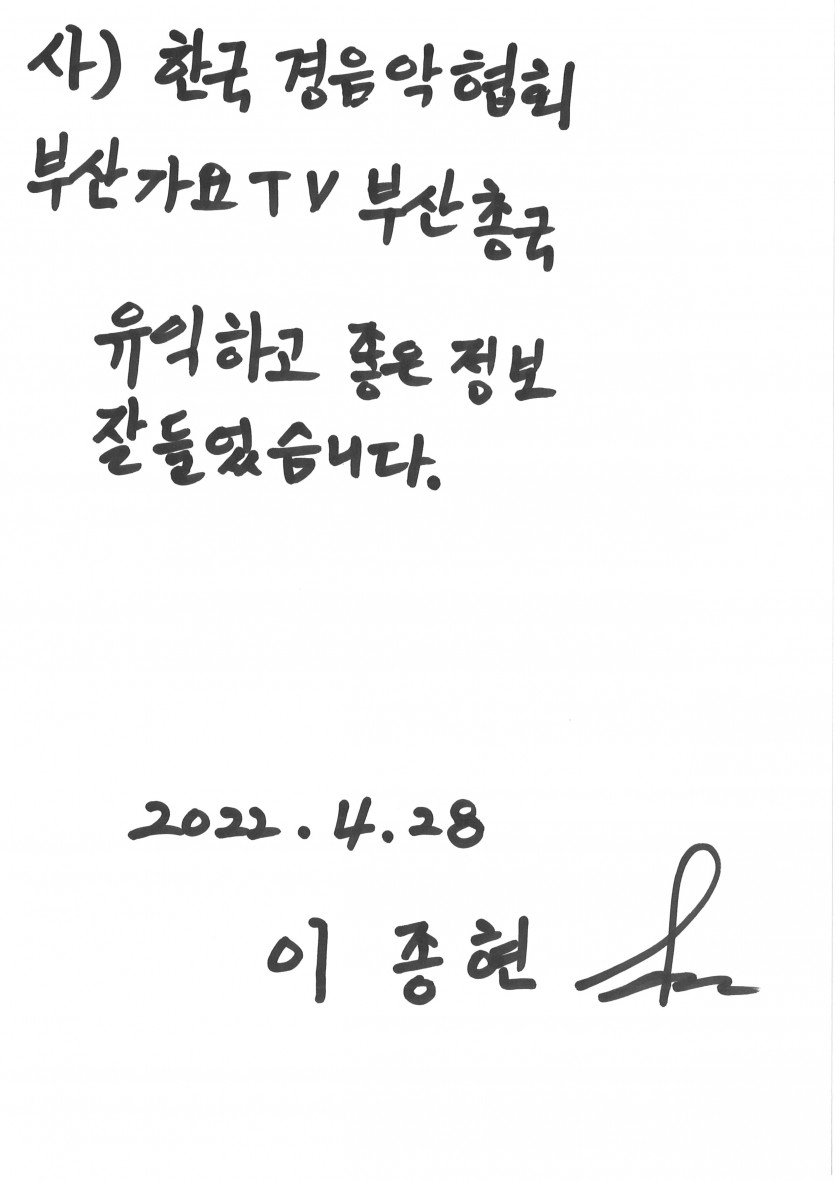 사) 한국 경음악협회
부산가요TV 부산총국
유익하고 좋은 정보
잘들었습니다.
2022.4.28
이종현